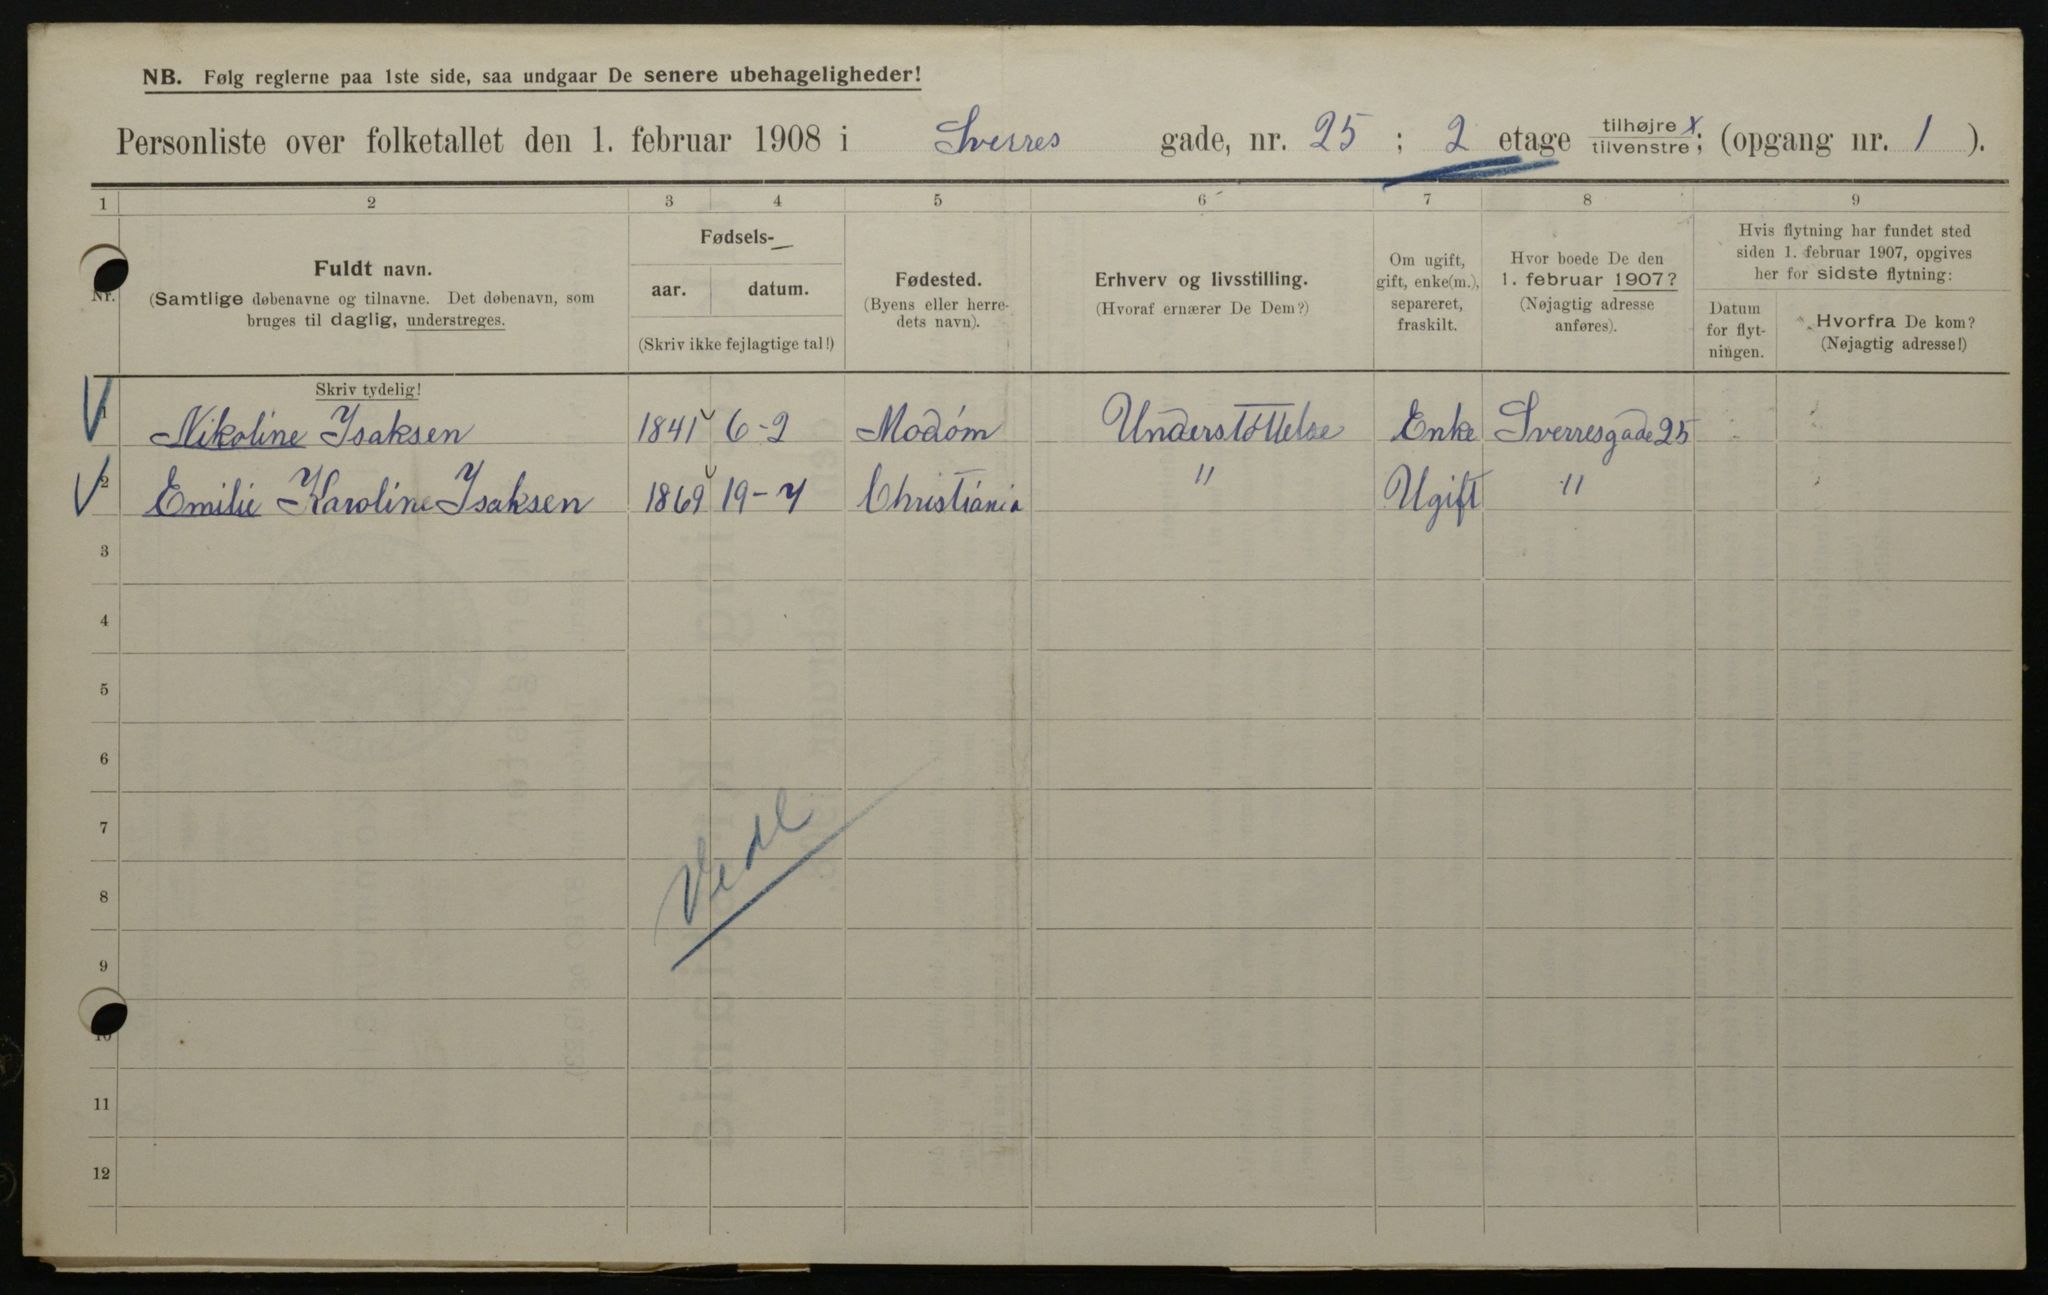 NB. Følg reglerne paa 1ste side, saa undgaar De senere ubehageligheder!
Personliste over folketallet den 1. februar 1908 i Sverres gade, nr. 25 ; 2 etage tilhøjre X / tilvenstre; (opgang nr. 1 ).
1 2 3 4 5 6 7 8 9
Nr.
Fuldt navn.
(Samtlige døbenavne og tilnavne. Det døbenavn, som
bruges til daglig, understreges.
Fødsels-
aar. datum.
(Skriv ikke fejlagtige tal!)
Fødested.
(Byens eller herre-
dets navn).
Erhverv og livsstilling.
(Hvoraf ernærer De Dem?)
Om ugift,
gift, enke(m.),
separeret,
fraskilt.
Hvor boede De den
1. februar 1907?
(Nøjagtig adresse
anføres).
Hvis flytning har fundet sted
siden 1. februar 1907, opgives
her for sidste flytning:
Datum
for flyt-
ningen.
Hvorfra De kom?
(Nøjagtig adresse!)
Skriv tydelig!
1 Nikoline Isaksen 1841 6-2 Modøm Understøttelse Enke Sverresgade 25
2 Emilie Karoline Isaksen 1869 19-7 Christiania " Ugift "
3
4
5
6
7
8
9
10
11
12